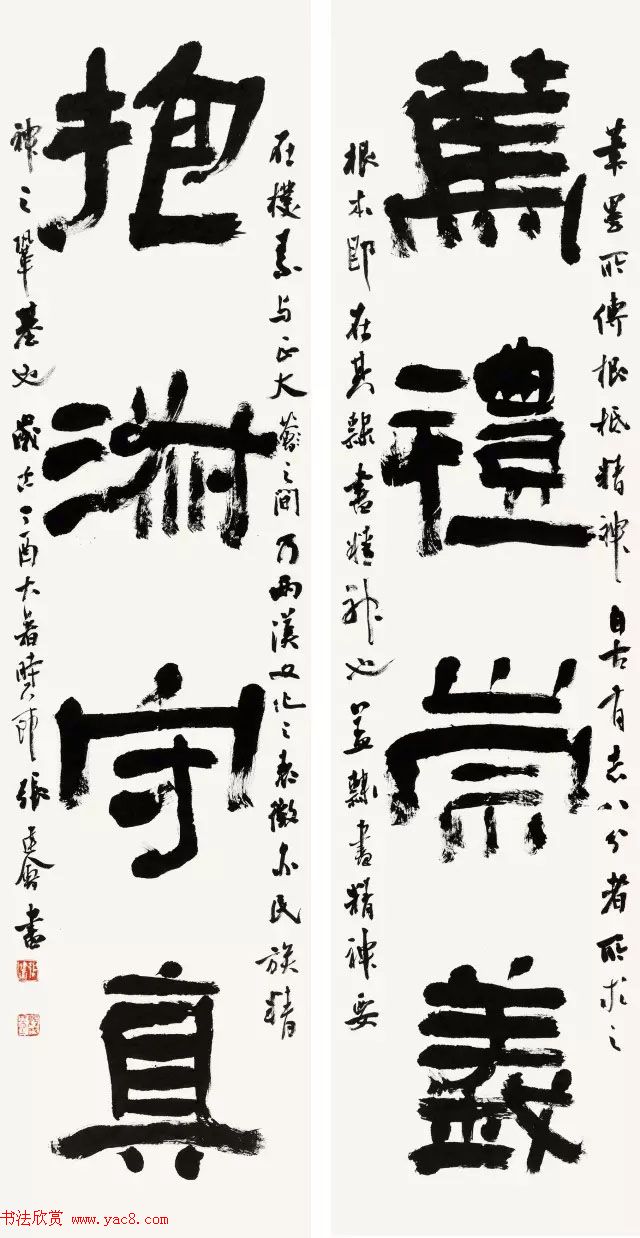 筆墨所傳根柢精神自古有志八分者所求之
篤禮崇義
根本即在其隸書精神也蓋隸書精神要
在樸素与正大之間乃兩漢文化之表徵亦民族精
抱淑守真
神之鞏基也歲次丁酉大暑時節張建會書
书法欣赏 www.yac8.com